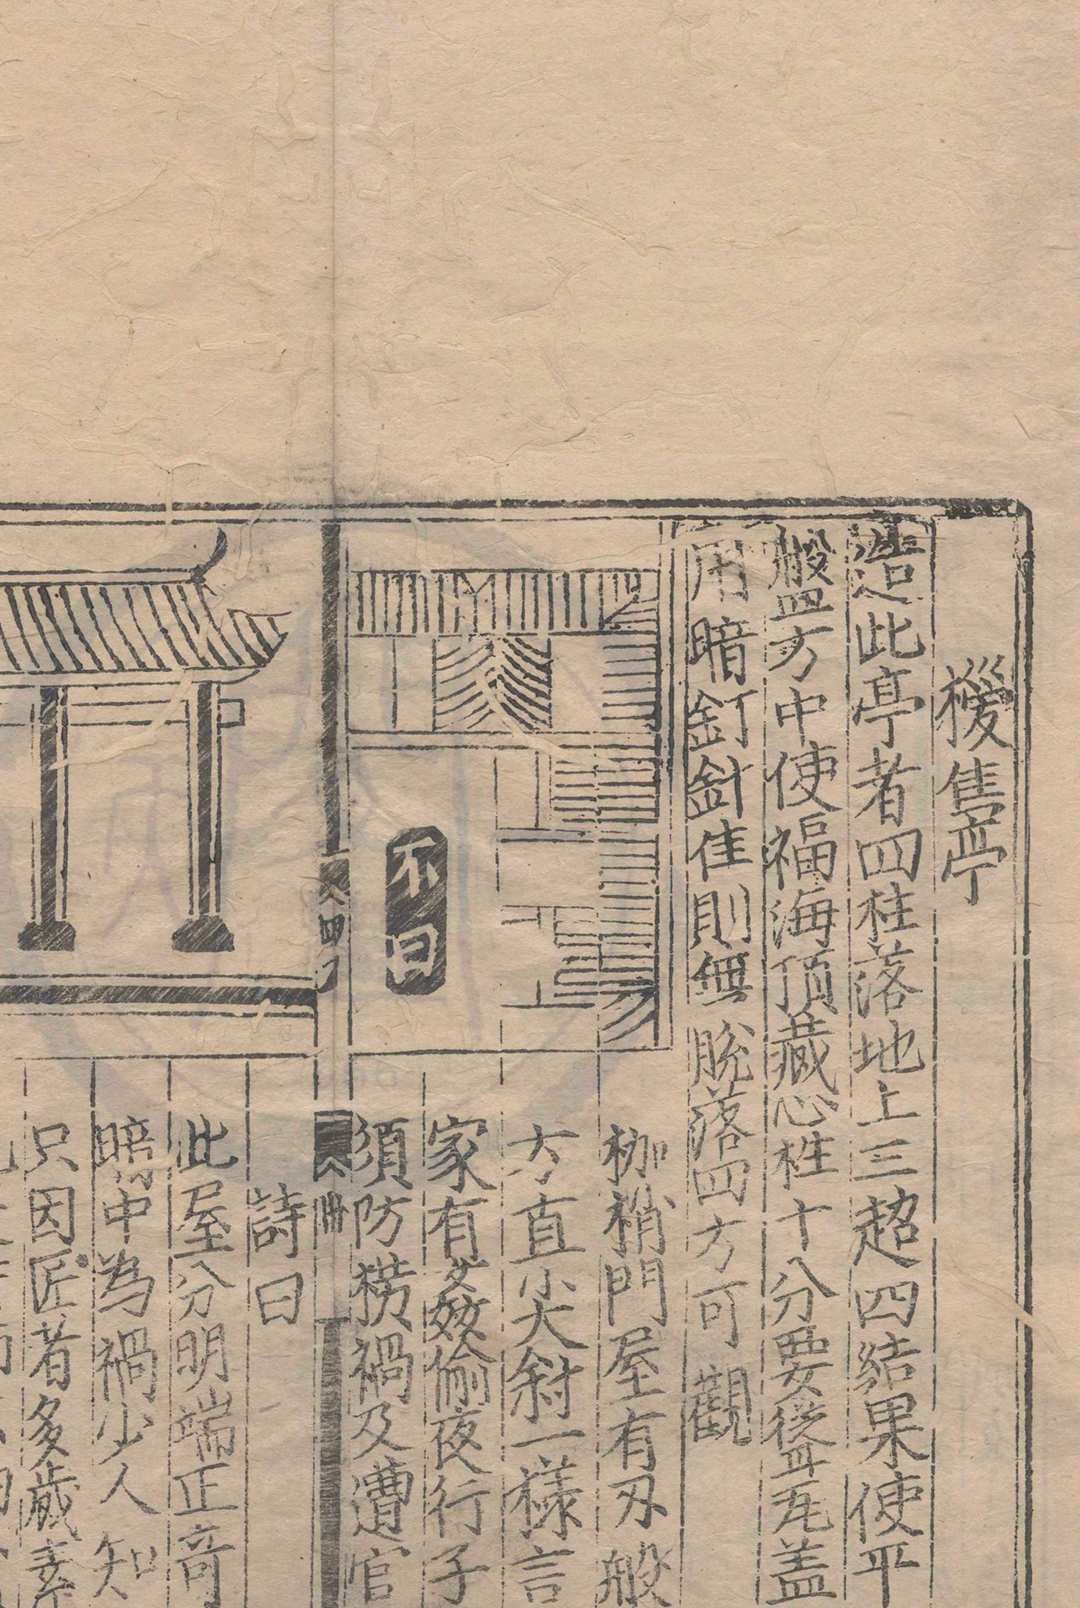 造此亭者四柱落地上三超四結果使平
盤方中使福海頂藏心柱十分要聳瓦蓋
用暗釘釘住則無脫落四方可觀
枷梢門屋有刄般
方直尖斜一樣言
家有姦偷夜行子
須防横禍及遭官
不曰
詩曰
此屋分明端正奇
暗中為禍少人知
只因匠者多歲素